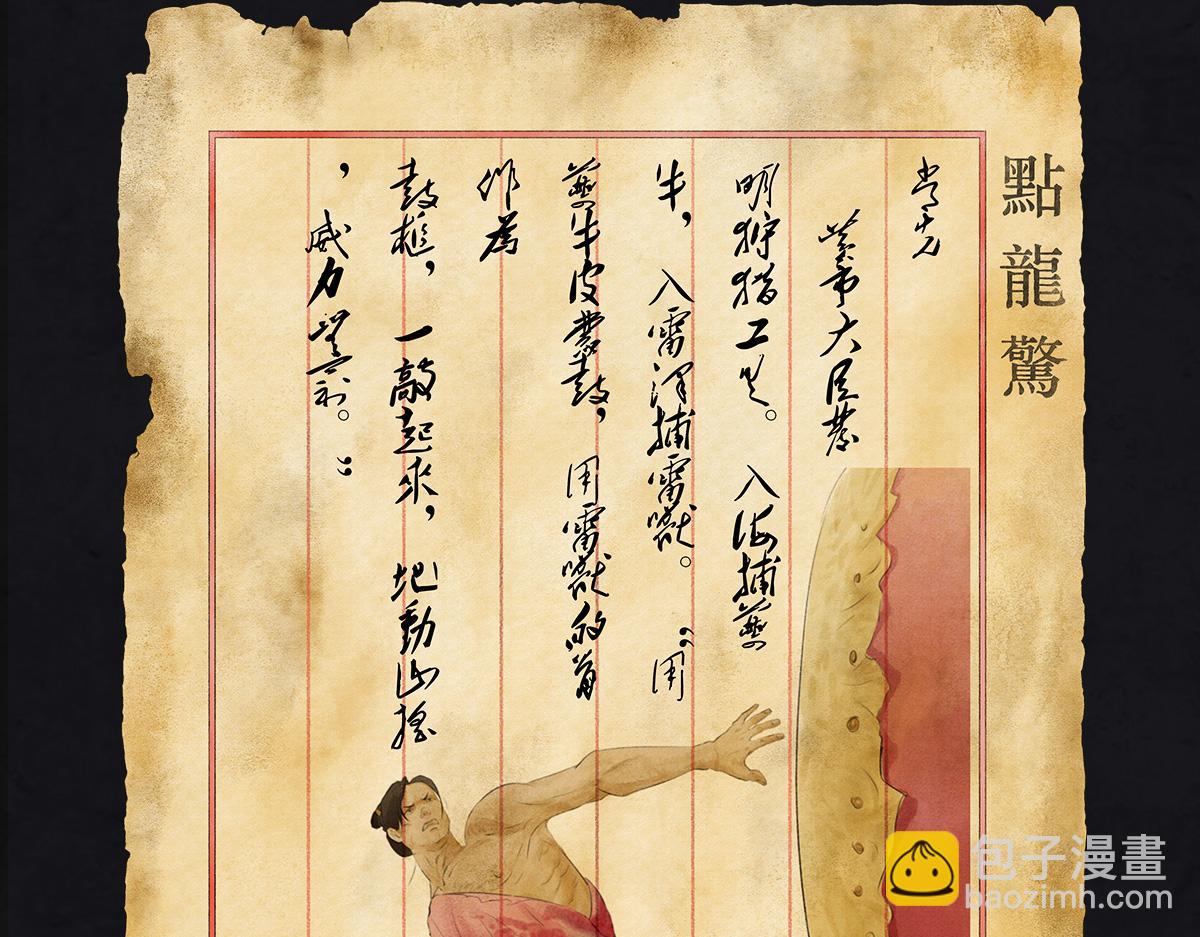 點龍驚
黃帝大臣發
明狩猎工具。入海捕夔
牛，入雷澤捕雷獸。“用
夔牛皮蒙鼓，用雷獸的
作為
鼓槌，一敲起來，地動山搖
，威力
包子漫畫
baozimh.com